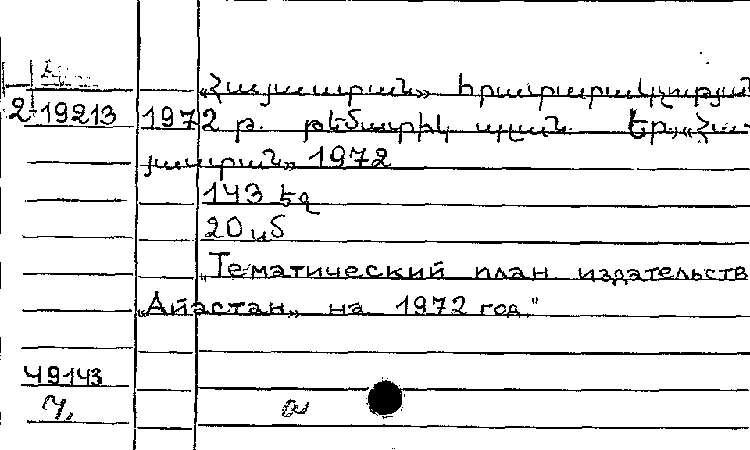 «Հայաստան» հրատարակչության
2-19213 1972 թ. թեմատիկ պլան. Եր., «Հա-
յաստան» 1972
143 էջ
20 սմ
"Тематический план издательств
"Айастан" на 1972 год."
49143
а